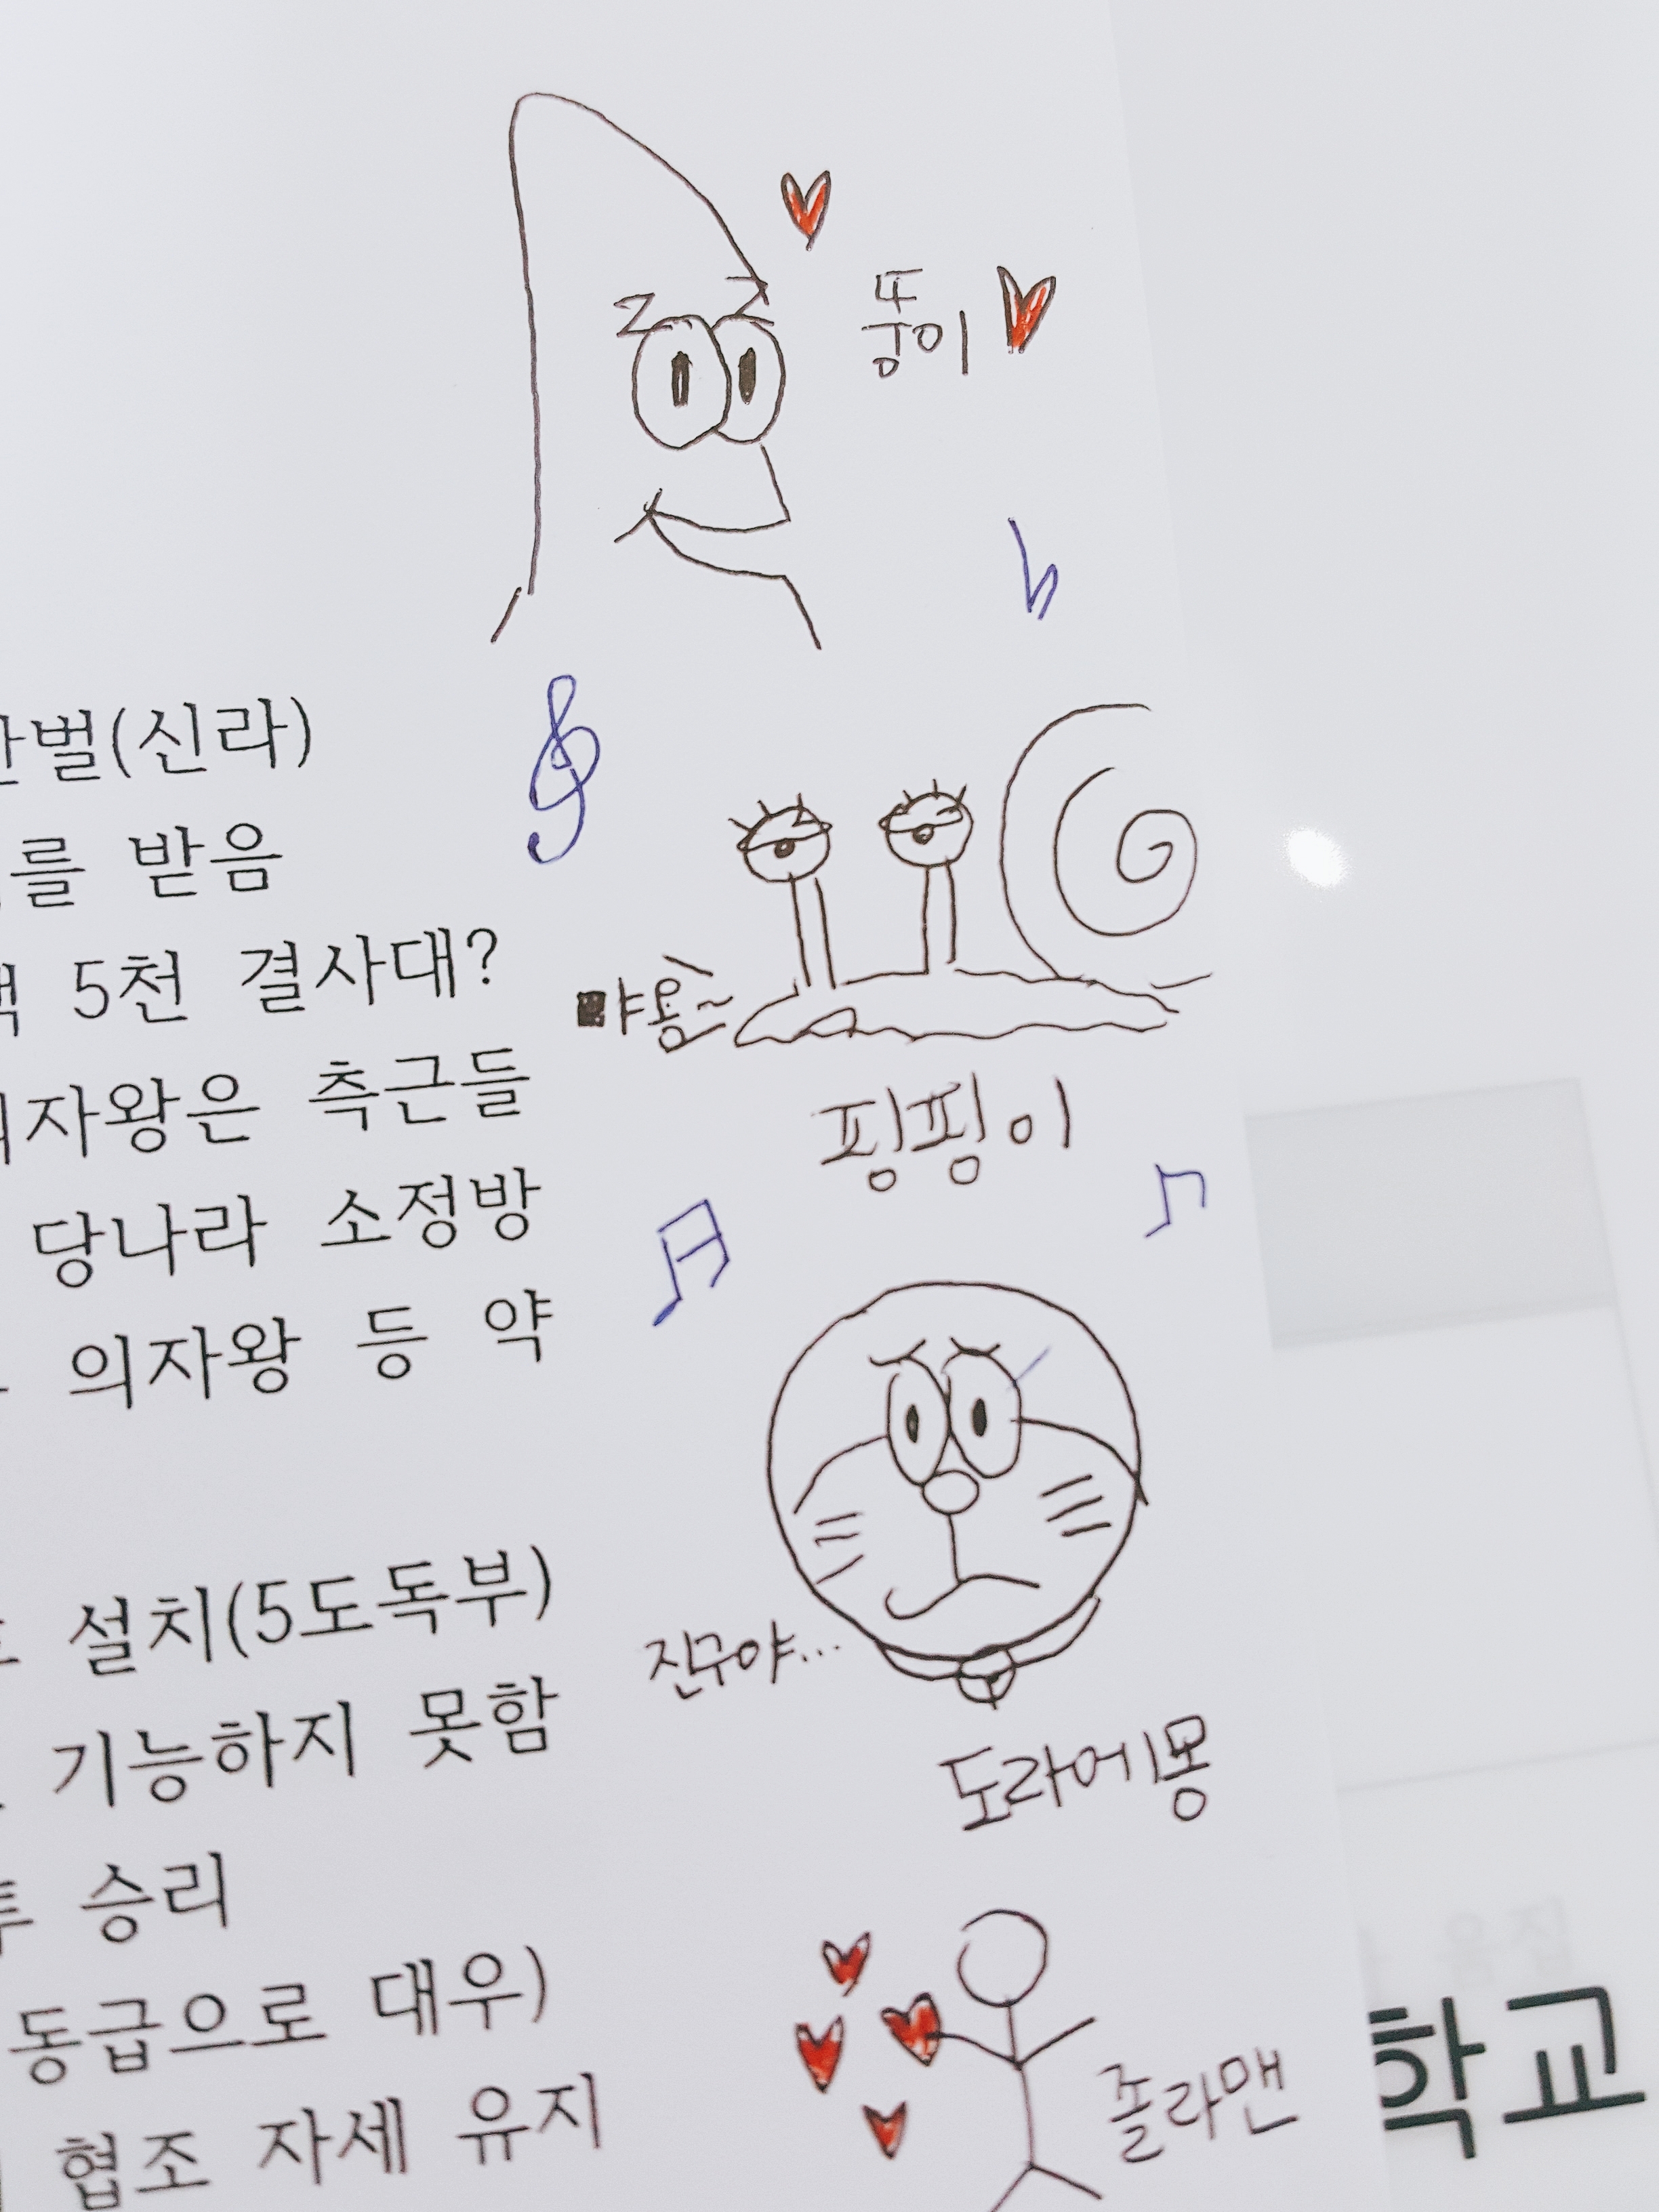 뚱이
벌(신라)
를 받음
5천 결사대?
의자왕은 측근들
야옹~
핑핑이
당나라 소정방
의자왕 등 약
설치(5도독부)
진구야...
기능하지 못함
도라에몽
승리
동급으로 대우)
졸라맨
학교
협조 자세 유지